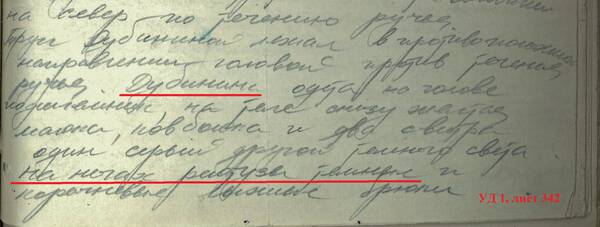 на север по течению ручья,
Труп Дубининой лежал в противоположном
направлении головой против течения
ручья. Дубинина одета на голове
подшлемник на теле снизу желтая
майка, ковбойка и два свитра
один серый другой темного света
на ногах рейтузы темные и
коричневые лыжные брюки
УД 1, лист 342